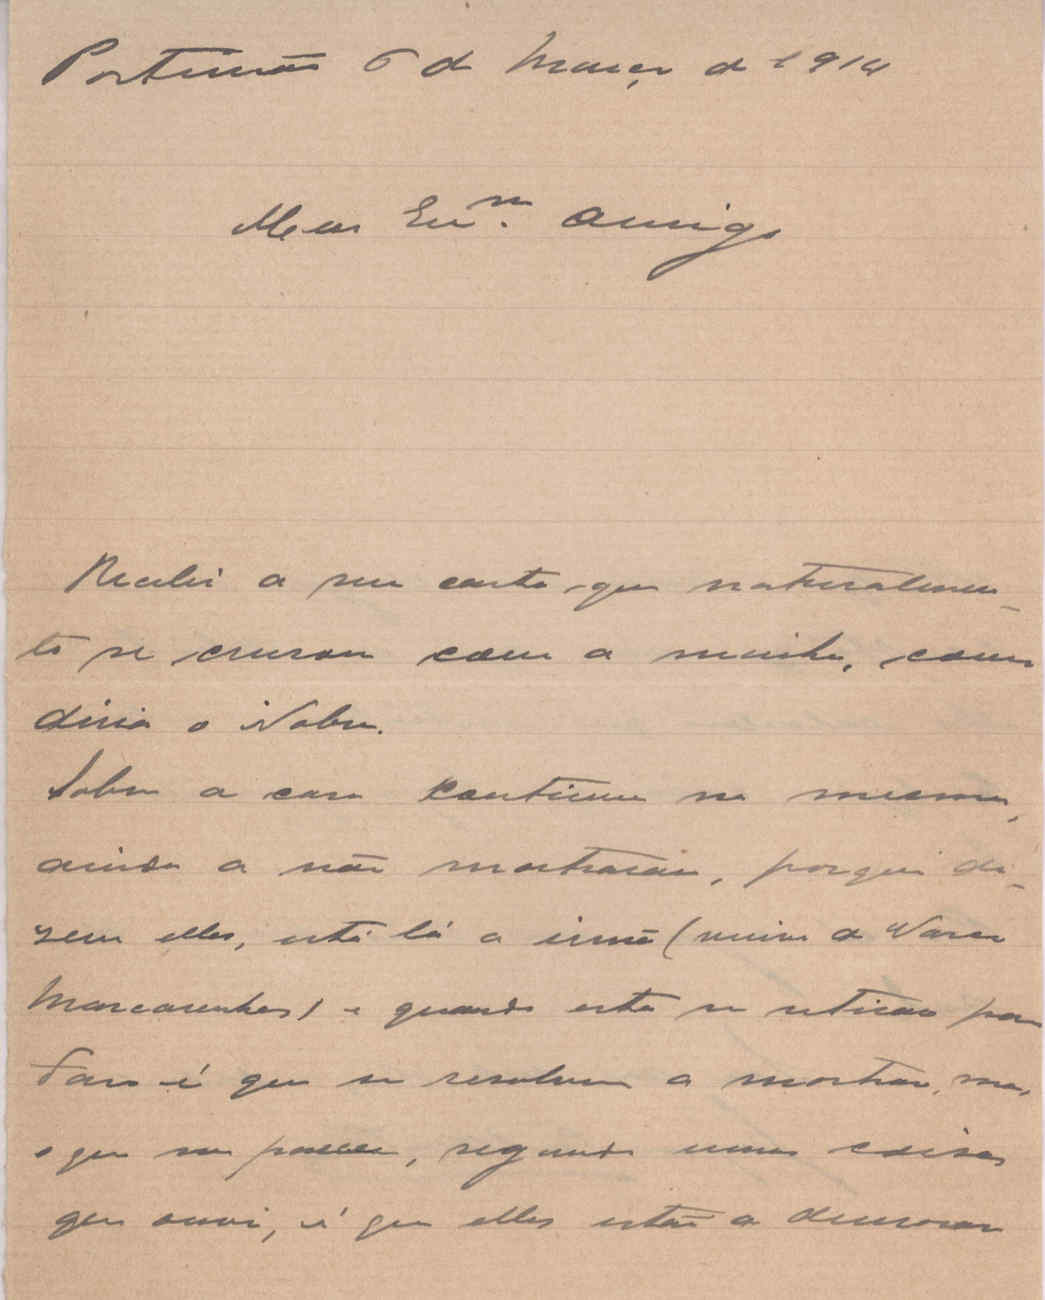 Portimão 6 de Março de 1914
Meu Exmo. Amigo
Recebi a sua carta que naturalmen-
te se cruzou com a minha, como
diria o Nobre.
Sobre a casa continua na mesma,
ainda a não mostraram, porque di-
zem elles, está lá a irmã (viuva do
Mascarenhas) e quando esta se retirar para
Faro é que se resolvem a mostrar, mas
o que me parece, segundo umas coisas
que ouvi, é que elles estão a demorar